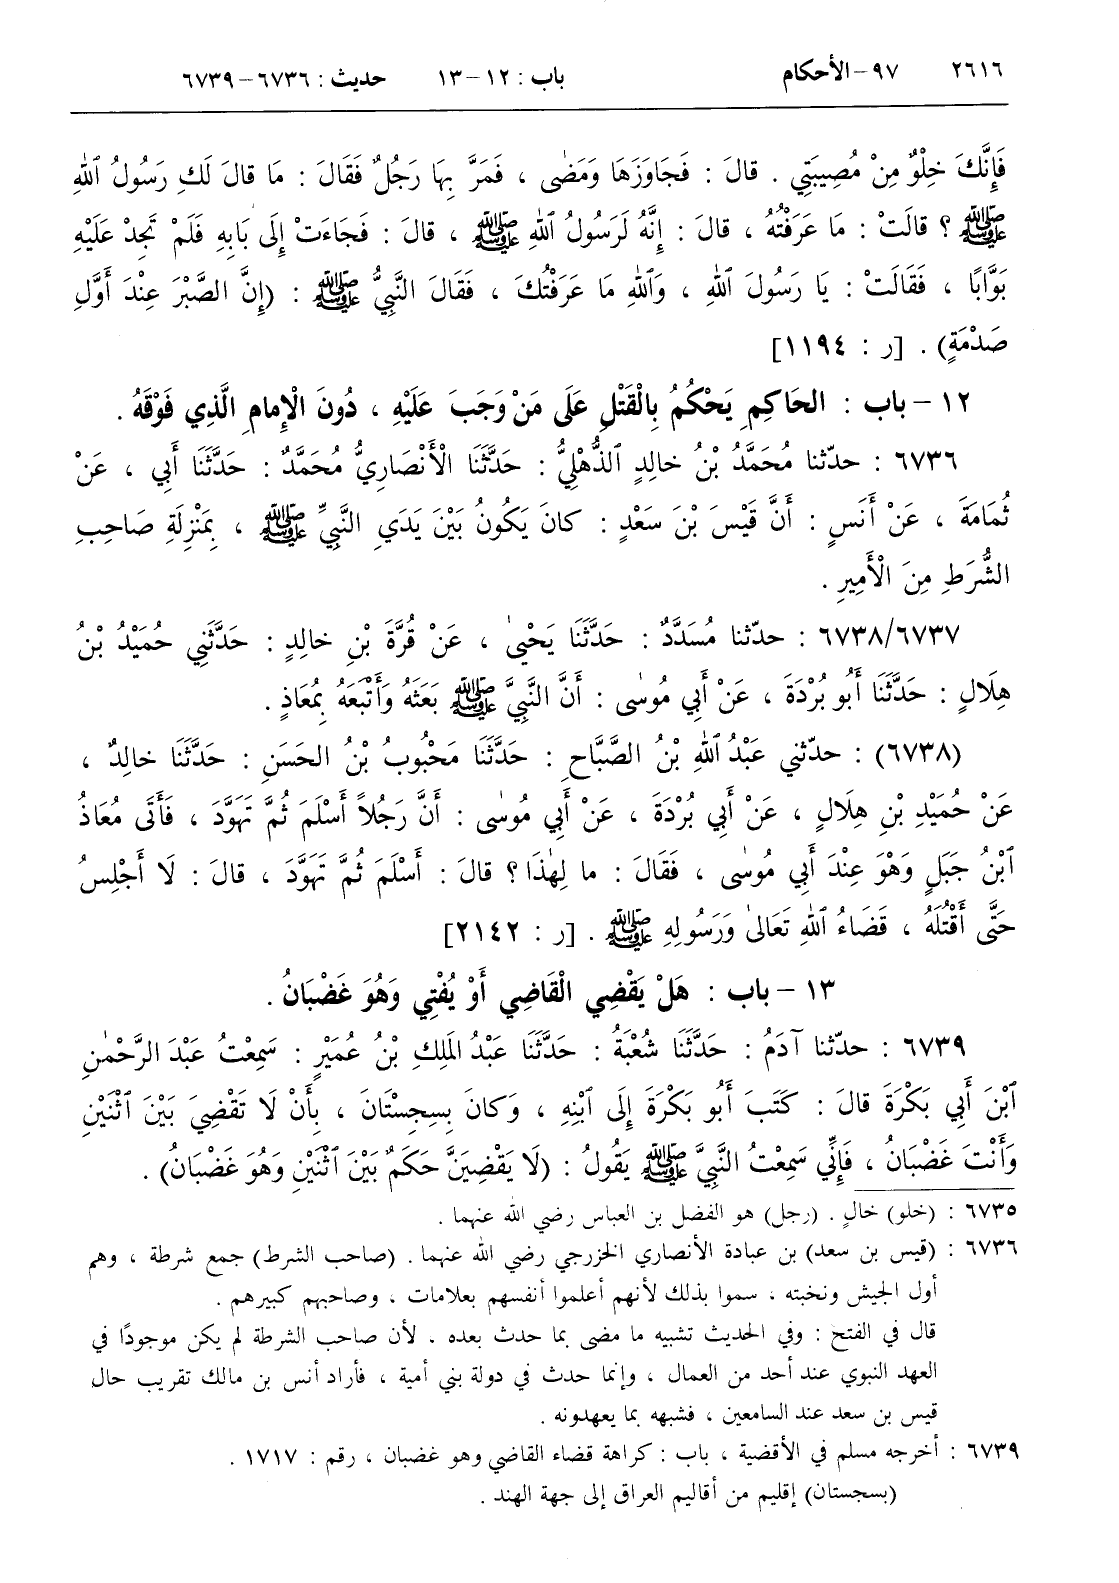 ٢٦١٦ ٩٧-الأحكام باب : ١٢-١٣ حديث : ٦٧٣٦-٦٧٣٩
فَإِنَّكَ خِلْوٌ مِنْ مُصِيبَتِي . قالَ : فَجَاوَزَهَا وَمَضٰى ، فَمَرَّ بِهَا رَجُلٌ فَقَالَ : مَا قالَ لَكِ رَسُولُ ٱللهِ
ﷺ ؟ قالَتْ : مَا عَرَفْتُهُ ، قالَ : إِنَّهُ لَرَسُولُ ٱللهِ ﷺ ، قالَ : فَجَاءَتْ إِلَى بَابِهِ فَلَمْ تَجِدْ عَلَيْهِ
بَوَّابًا ، فَقَالَتْ : يَا رَسُولَ ٱللهِ ، وَٱللهِ مَا عَرَفْتُكَ ، فَقَالَ النَّبِيُّ ﷺ : (إِنَّ الصَّبْرَ عِنْدَ أَوَّلِ
صَدْمَةٍ) . [ر : ١١٩٤]
١٢ – باب : الحَاكِمِ يَحْكُمُ بِالْقَتْلِ عَلَى مَنْ وَجَبَ عَلَيْهِ ، دُونَ الْإِمامِ الَّذِي فَوْقَهُ .
٦٧٣٦ : حدّثنا مُحَمَّدُ بْنُ خالِدٍ ٱلذُّهْلِيُّ : حَدَّثَنَا الْأَنْصَارِيُّ مُحَمَّدٌ : حَدَّثَنَا أَبِي ، عَنْ
ثُمَامَةَ ، عَنْ أَنَسٍ : أَنَّ قَيْسَ بْنَ سَعْدٍ : كانَ يَكُونُ بَيْنَ يَدَيِ النَّبِيِّ ﷺ ، بِمَنْزِلَةِ صَاحِبِ
الشُّرَطِ مِنَ الْأَمِيرِ .
٦٧٣٨/٦٧٣٧ : حدّثنا مُسَدَّدٌ : حَدَّثَنَا يَحْيىٰ ، عَنْ قُرَّةَ بْنِ خالِدٍ : حَدَّثَنِي حُمَيْدُ بْنُ
هِلَالٍ : حَدَّثَنَا أَبُو بُرْدَةَ ، عَنْ أَبِي مُوسٰى : أَنَّ النَّبِيَّ ﷺ بَعَثَهُ وَأَتْبَعَهُ بِمُعَاذٍ .
(٦٧٣٨) : حدّثني عَبْدُ ٱللهِ بْنُ الصَّبَّاحِ : حَدَّثَنَا مَحْبُوبُ بْنُ الحَسَنِ : حَدَّثَنَا خالِدٌ ،
عَنْ حُمَيْدِ بْنِ هِلَالٍ ، عَنْ أَبِي بُرْدَةَ ، عَنْ أَبِي مُوسٰى : أَنَّ رَجُلاً أَسْلَمَ ثُمَّ تَهَوَّدَ ، فَأَتَى مُعَاذُ
ٱبْنُ جَبَلٍ وَهْوَ عِنْدَ أَبِي مُوسٰى ، فَقَالَ : ما لِهٰذَا ؟ قالَ : أَسْلَمَ ثُمَّ تَهَوَّدَ ، قالَ : لَا أَجْلِسُ
حَتَّى أَقْتُلَهُ ، قَضَاءُ ٱللهِ تَعَالىٰ وَرَسُولِهِ ﷺ . [ر : ٢١٤٢]
١٣ – باب : هَلْ يَقْضِي الْقَاضِي أَوْ يُفْتِي وَهُوَ غَضْبَانُ .
٦٧٣٩ : حدّثنا آدَمُ : حَدَّثَنَا شُعْبَةُ : حَدَّثَنَا عَبْدُ المَلِكِ بْنُ عُمَيْرٍ : سَمِعْتُ عَبْدَ الرَّحْمٰنِ
ٱبْنَ أَبِي بَكْرَةَ قالَ : كَتَبَ أَبُو بَكْرَةَ إِلَى ٱبْنِهِ ، وَكانَ بِسِجِسْتَانَ ، بِأَنْ لَا تَقْضِيَ بَيْنَ ٱثْنَيْنِ
وَأَنْتَ غَضْبَانُ ، فَإِنِّي سَمِعْتُ النَّبِيَّ ﷺ يَقُولُ : (لَا يَقْضِيَنَّ حَكَمٌ بَيْنَ ٱثْنَيْنِ وَهُوَ غَضْبَانُ) .
٦٧٣٥ : (خلو) خالٍ . (رجل) هو الفضل بن العباس رضي الله عنهما .
٦٧٣٦ : (قيس بن سعد) بن عبادة الأنصاري الخزرجي رضي الله عنهما . (صاحب الشرط) جمع شرطة ، وهم
أول الجيش ونخبته ، سموا بذلك لأنهم أعلموا أنفسهم بعلامات ، وصاحبهم كبيرهم .
قال في الفتح : وفي الحديث تشبيه ما مضى بما حدث بعده . لأن صاحب الشرطة لم يكن موجودًا في
العهد النبوي عند أحد من العمال ، وإنما حدث في دولة بني أمية ، فأراد أنس بن مالك تقريب حال
قيس بن سعد عند السامعين ، فشبهه بما يعهدونه .
٦٧٣٩ : أخرجه مسلم في الأقضية ، باب : كراهة قضاء القاضي وهو غضبان ، رقم : ١٧١٧ .
(بسجستان) إقليم من أقاليم العراق إلى جهة الهند .